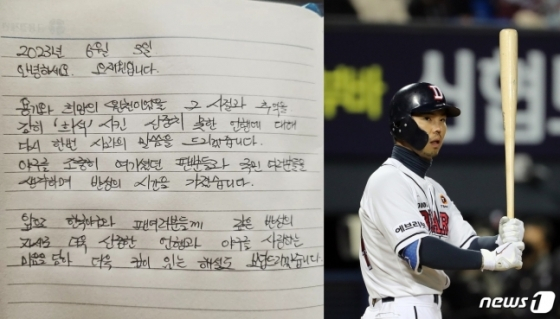 2023년
안녕하세요. 오재원입니다.
용기와 희망의 원천이었을 그 시절과 추억을
감히 신중치 못한 언행에 대해
다시 한번 사과의 말씀을 드리겠습니다.
야구를 소중히 여기셨던 팬분들과 국민 여러분들을
생각하며 반성의 시간을 가졌습니다.
앞으로 한국야구와 팬여러분들께 깊은 반성의
자세로 더욱 신중한 언행과 야구를 사랑하는
마음을 담아 더욱 깊이 있는 해설로 보답드리겠습니다.
바 신협
D
에브리
news1